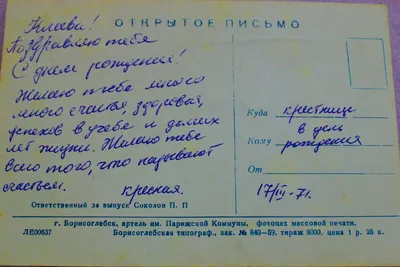 ОТКРЫТОЕ ПИСЬМО
Клава!
Поздравляю тебя
С днём рождения!
Желаю тебе много
много счастья, здоровья,
успехов в учёбе и долгих
лет жизни. Желаю тебе
всего того, что называют
счастьем.
Крёсная.
Куда крестнице
в день
Кому рождения
От
17/III-71.
Ответственный за выпуск Соколов П. П
г. Борисоглебск, артель им. Парижской Коммуны, фотоцех массовой печати.
ЛЕ00637 Борисоглебская типограф., зак. № 840—59, тираж 8000, цена 1 р. 25 к.